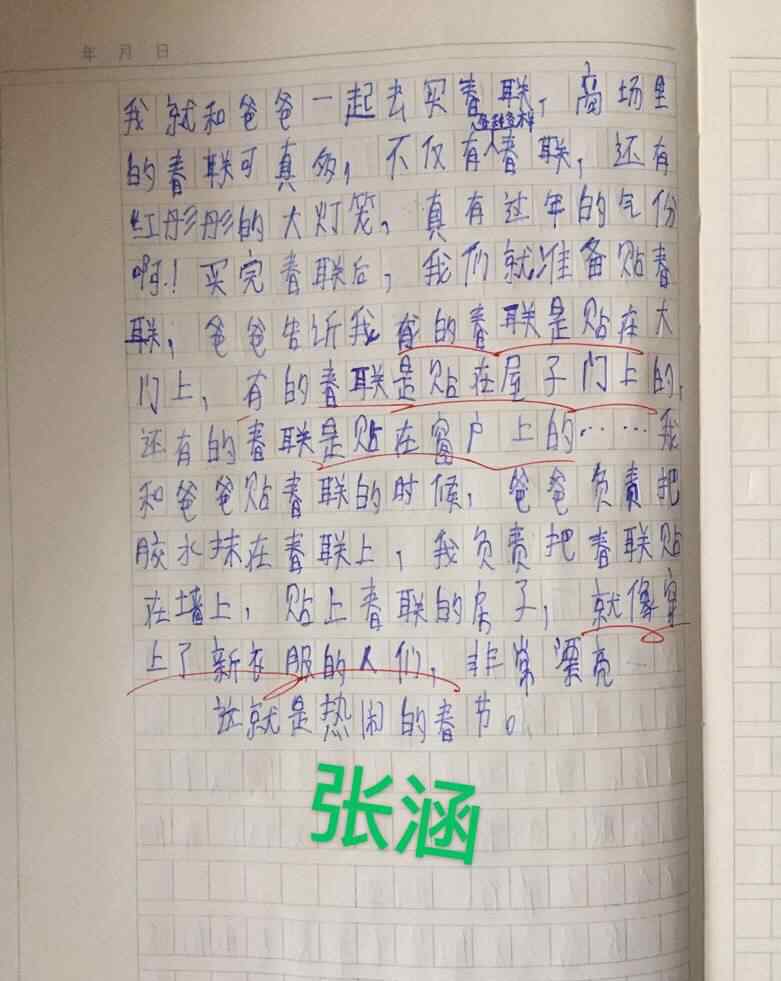 年 月 日
我就和爸爸一起去买春联，商场里
各种各样
的春联可真多，不仅有春联，还有
红彤彤的大灯笼，真有过年的气份
啊！买完春联后，我们就准备贴春
联，爸爸告诉我有的春联是贴在大
门上，有的春联是贴在屋子门上的，
还有的春联是贴在窗户上的……我
和爸爸贴春联的时候，爸爸负责把
胶水抹在春联上，我负责把春联贴
在墙上，贴上春联的房子，就像穿
上了新衣服的人们，非常漂亮
这就是热闹的春节。
张涵